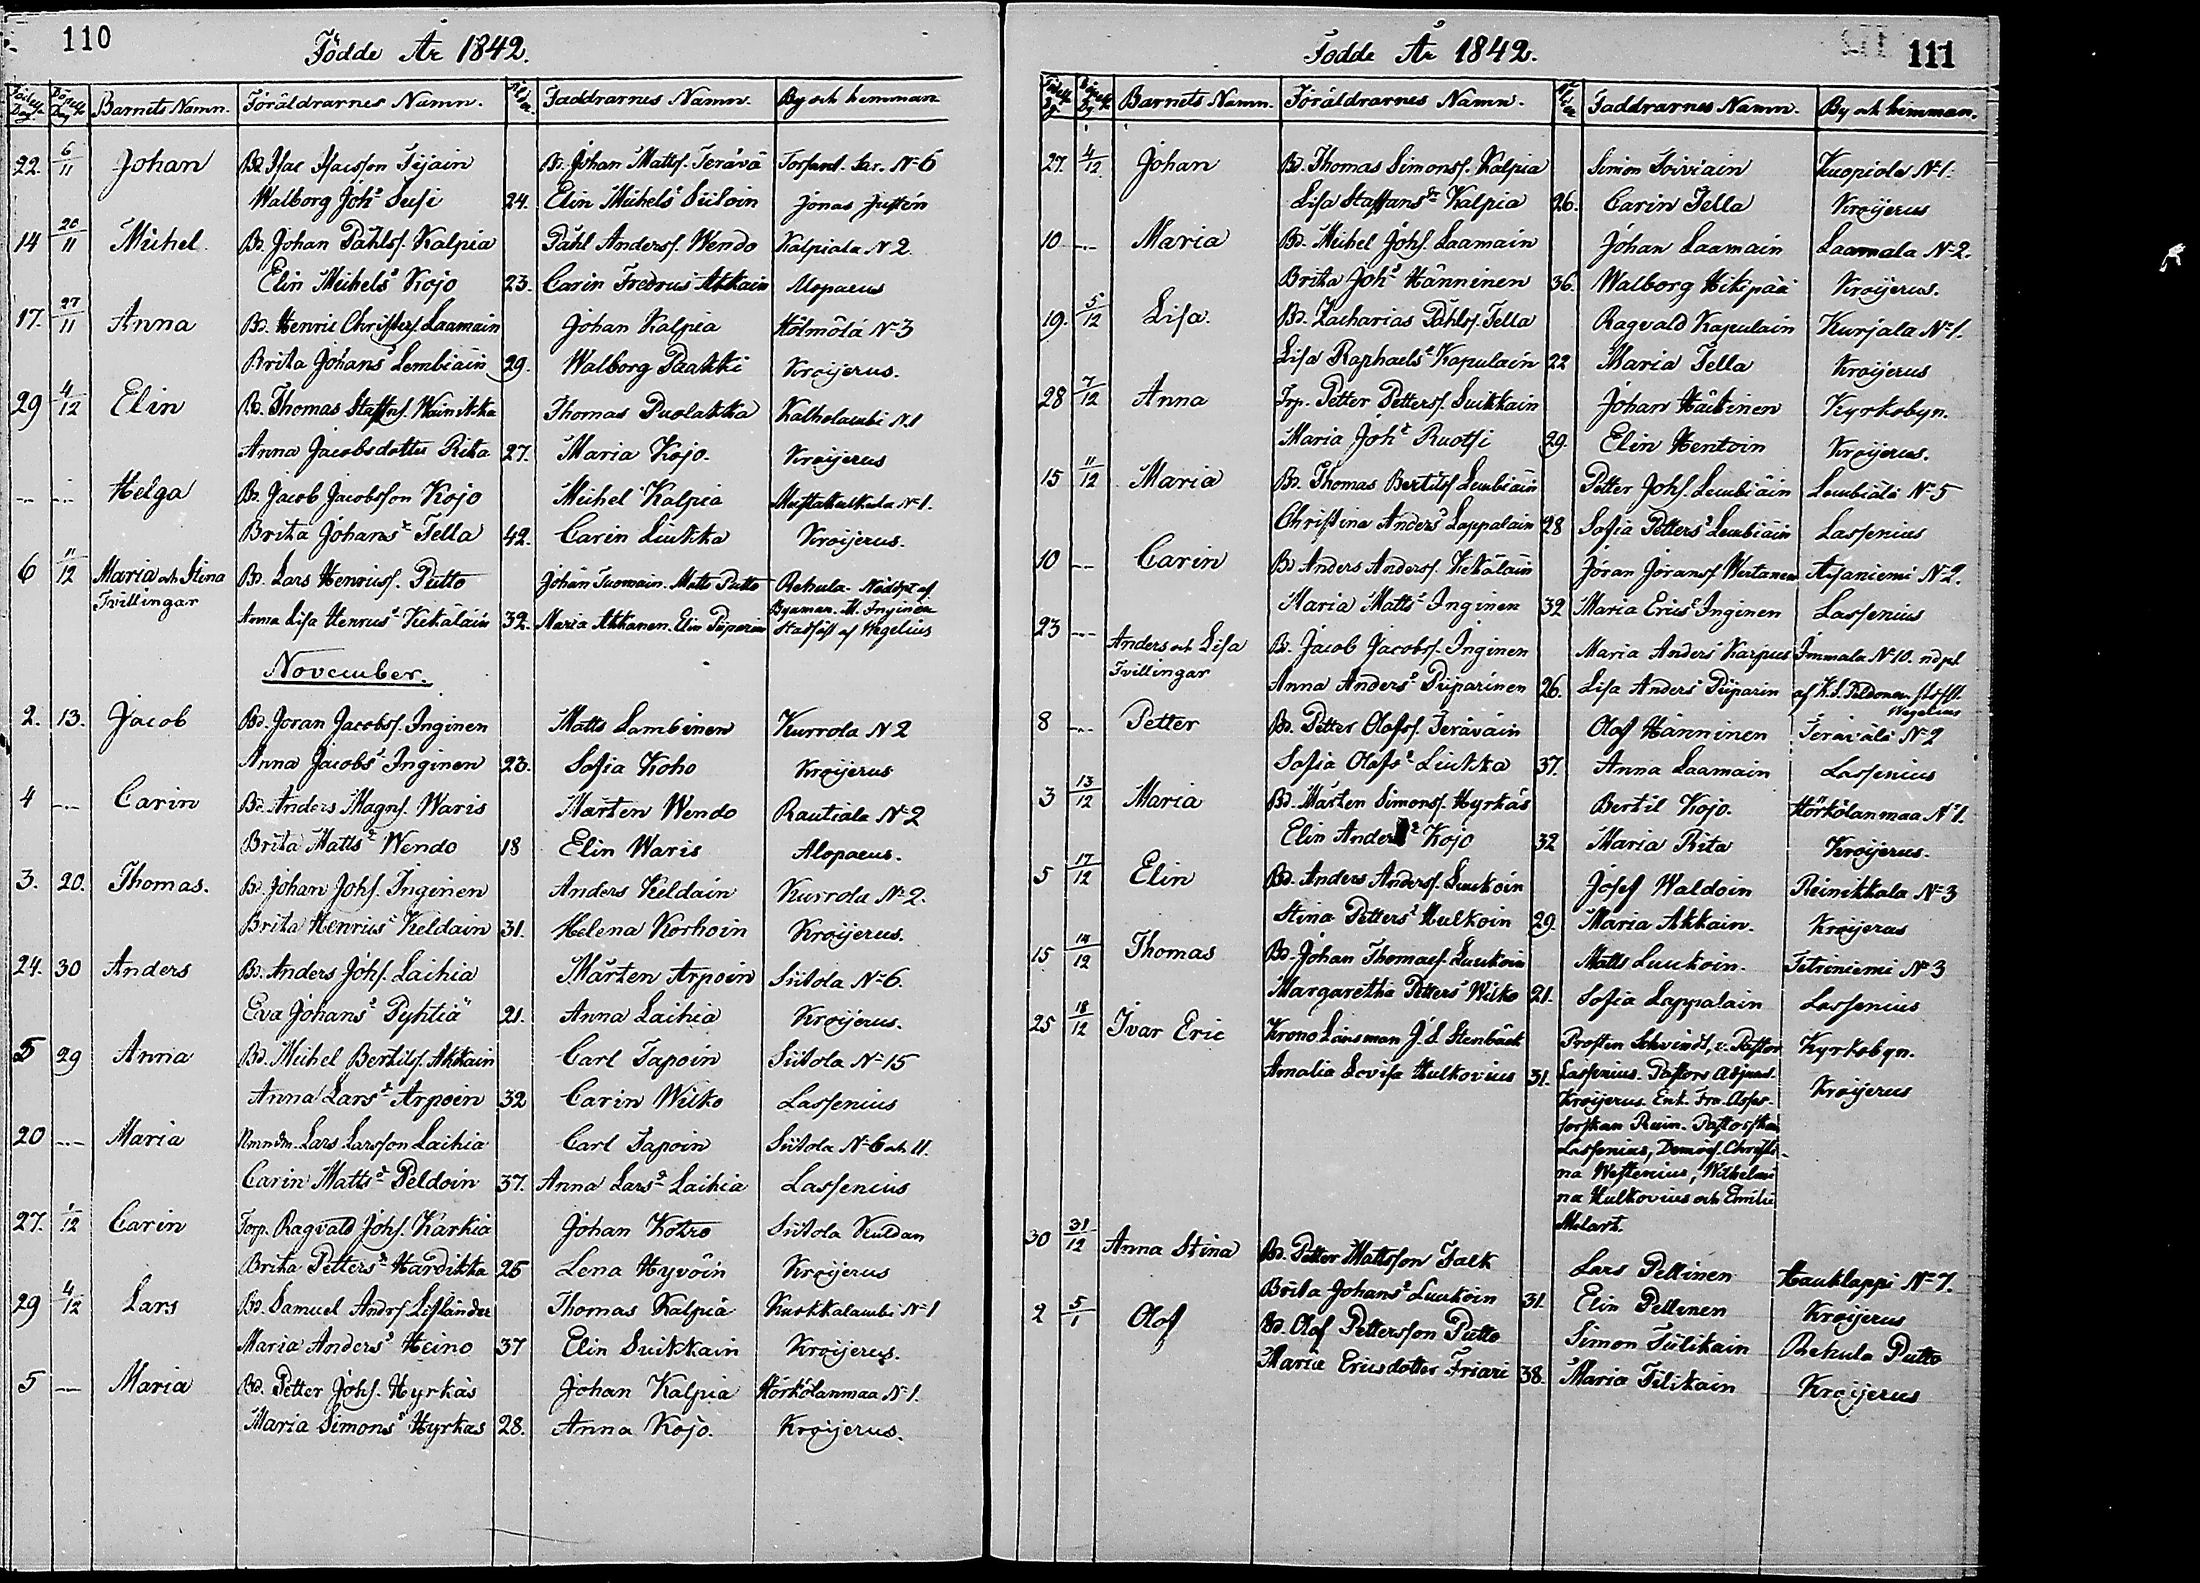 110
Födde År 1842.
Födelse Dag. Döpelse Dag Barnets Namn. Föräldrarnes Namn. Ålder. Faddrarnes Namn. By och hemman.
22. 6/11 Johan Bd. Isac Isacsson Tijain Bd. Johan Matts. Terävä Torpant. Sar. No 6
Walborg Johs Susi 24. Elin Michels Siitoin Jonas Justén
14 20/11 Michel Bd. Johan Påhls. Kalpia Påhl Anderss. Wendo Kalpiala N 2.
Elin Michels Kojo 23. Carin Fredrics Akkain Alopaeus
17. 27/11 Anna Bd. Henric Christers. Laamain Johan Kalpia Hölmölä No 3
Brita Johans Lembiäin 29. Walborg Paakki Kroijerus.
29 4/12 Elin Bd. Thomas Staffns. Wainikka Thomas Puolakka Kalholambi N.1
Anna Jacobsdotter Rita 27. Maria Kojo. Kroijerus
-..- -..- Helga Bd. Jacob Jacobsson Kojo Michel Kalpia No 1.
Brita Johans Tella 42. Carin Liukka Kroijerus.
6 11/12 Maria och Stina Bd. Lars Henricss. Putto Johan Tuomain. Matts Putto Rehula. Nöddöpt af
Tvillingar Anna Lisa Henrics Kekäläin 32. Maria Akkanen. Elin Piiparin Byaman. M. Inginen
Stadfäst af Wegelius
November.
2. 13. Jacob Bd. Joran Jacobs. Inginen Matts Lambinen Kurrola N 2
Anna Jacobs Inginen 23. Sofia Koho Kroijerus
4 -..- Carin Bd. Anders Magns. Waris Mårten Wendo Rautiala No 2
Brita Matts Wendo 18 Elin Waris Alopaeus.
3. 20. Thomas. Bd. Johan Johs. Inginen Anders Keldain Kurrola No 2.
Brita Henrics Keldain 31. Helena Korhoin Kroijerus.
24. 30 Anders Bd. Anders Johs. Laihia Mårten Arpoin Siitola No 6.
Eva Johans Pyhtiä 21. Anna Laihia Kroijerus.
5 29 Anna Bd. Michel Bertils. Akkain Carl Tapoin Siitola No 15
Anna Lars Arpoin 32 Carin Wilko Lassenius
20 -..- Maria Nmndm. Lars Larsson Laihia Carl Tapoin Siitola No 6 och 11.
Carin Matts Peldoin 37. Anna Lars Laihia Lassenius
27. 1/12 Carin Torp. Ragvald Johs. Kärkiä Johan Kotro Siitola Kuldan
Brita Petters Hardikka 25 Lena Hyvöin Kroijerus
29 4/12 Lars Bd. Samuel Andrs. Liflander Thomas Kalpia Kurkkalambi No 1
Maria Anders Heino 37 Elin Suikkain Kroijerus.
5 -..- Maria Bd. Petter Johs. Hyrkäs Johan Kalpia Hörkölanmaa No 1.
Maria Simons Hyrkäs 28. Anna Kojo. Kroijerus.
111
Födde År 1842.
Födelse Dg. Döpelse Dg Barnets Namn. Föräldrarnes Namn. Ålder Faddrarnes Namn. By och hemman.
27. 4/12 Johan Bd. Thomas Simons. Kalpia Simon Toiviain Kuopiola No 1.
Lisa Staffans Kalpia 26. Carin Tella Kroijerus
10 -..- Maria Bd. Michel Johs. Laamain Johan Laamain Laamala No 2.
Brita Johs Hänninen 36. Walborg Hikipää Kroijerus.
19. 5/12 Lisa. Bd. Zacharias Påhls. Tella Ragvald Kapulain Kurjala No 1.
Lisa Raphaels Kapulain 22 Maria Tella Kroijerus
28 7/12 Anna Trp. Petter Petters. Suikkain Johan Häkinen Kyrkobyn.
Maria Johs Ruotsi 29. Elin Hentoin Kroijerus.
15 11/12 Maria Bd. Thomas Bertils. Lembiäin Petter Johs. Lembiäin Lembiälä No 5
Christina Anders Lappalain 28 Sofia Petters Lembiäin Lassenius
10 -..- Carin Bd Anders Anderss. Kekäläin Jöran Jöranss. Wertanen Asaniemi No 2.
Maria Matts Inginen 32 Maria Erics Inginen Lassenius
23 -..- Anders och Lisa Bd. Jacob Jacobs. Inginen Maria Anders Karpus Immala No 10. ndpt
Tvillingar Anna Anders Piiparinen 26. Lisa Anders Piiparin af K.S. Peldonen. stdfst
Wegelius
8 -..- Petter Bd. Petter Olofs. Teräväin Olof Hänninen Terävälä No 2
Sofia Olofs Liukka 37. Anna Laamain Lassenius
3 13/12 Maria Bd. Mårten Simons. Hyrkäs Bertil Kojo. Hörkölanmaa No 1.
Elin Anders Kojo 32 Maria Rita Kroijerus.
5 17/12 Elin Bd. Anders Anders. Luukoin Josef Waldoin Reinikkala No 3
Stina Petters Hulkoin 29. Maria Akkain. Kroijerus
15 14/12 Thomas Bd. Johan Thomas. Luukoin Matts Luukoin. Tetriniemi No 3
Margaretha Petters Wilko 21. Sofia Lappalain Lassenius
25 18/12 Ivar Eric Krono Länsman J. S. Stenbäck Prosten Schvindt, v. Pastor Kyrkobyn.
Amalia Lovisa Hulkovius 31. Lassenius. Pastors Adjunct Kroijerus
Kroijerus. Enk. Fru Asses-
sorskan Rein. Pastorskan
Lassenius, Demois. Christi-
na Westenius, Wilhelmi-
na Hulkovius och Emilie
Melart.
30 31/12 Anna Stina Bd. Petter Mattsson Falk Lars Pellinen Hauklappi No 7.
Brita Johans Luukoin 31. Elin Pellinen Kroijerus
2 5/1 Olof Bd. Olof Pettersson Putto Simon Tiilikain Rehula Putto
Maria Ericsdotter Friari 38. Maria Tiilikain Kroijerus